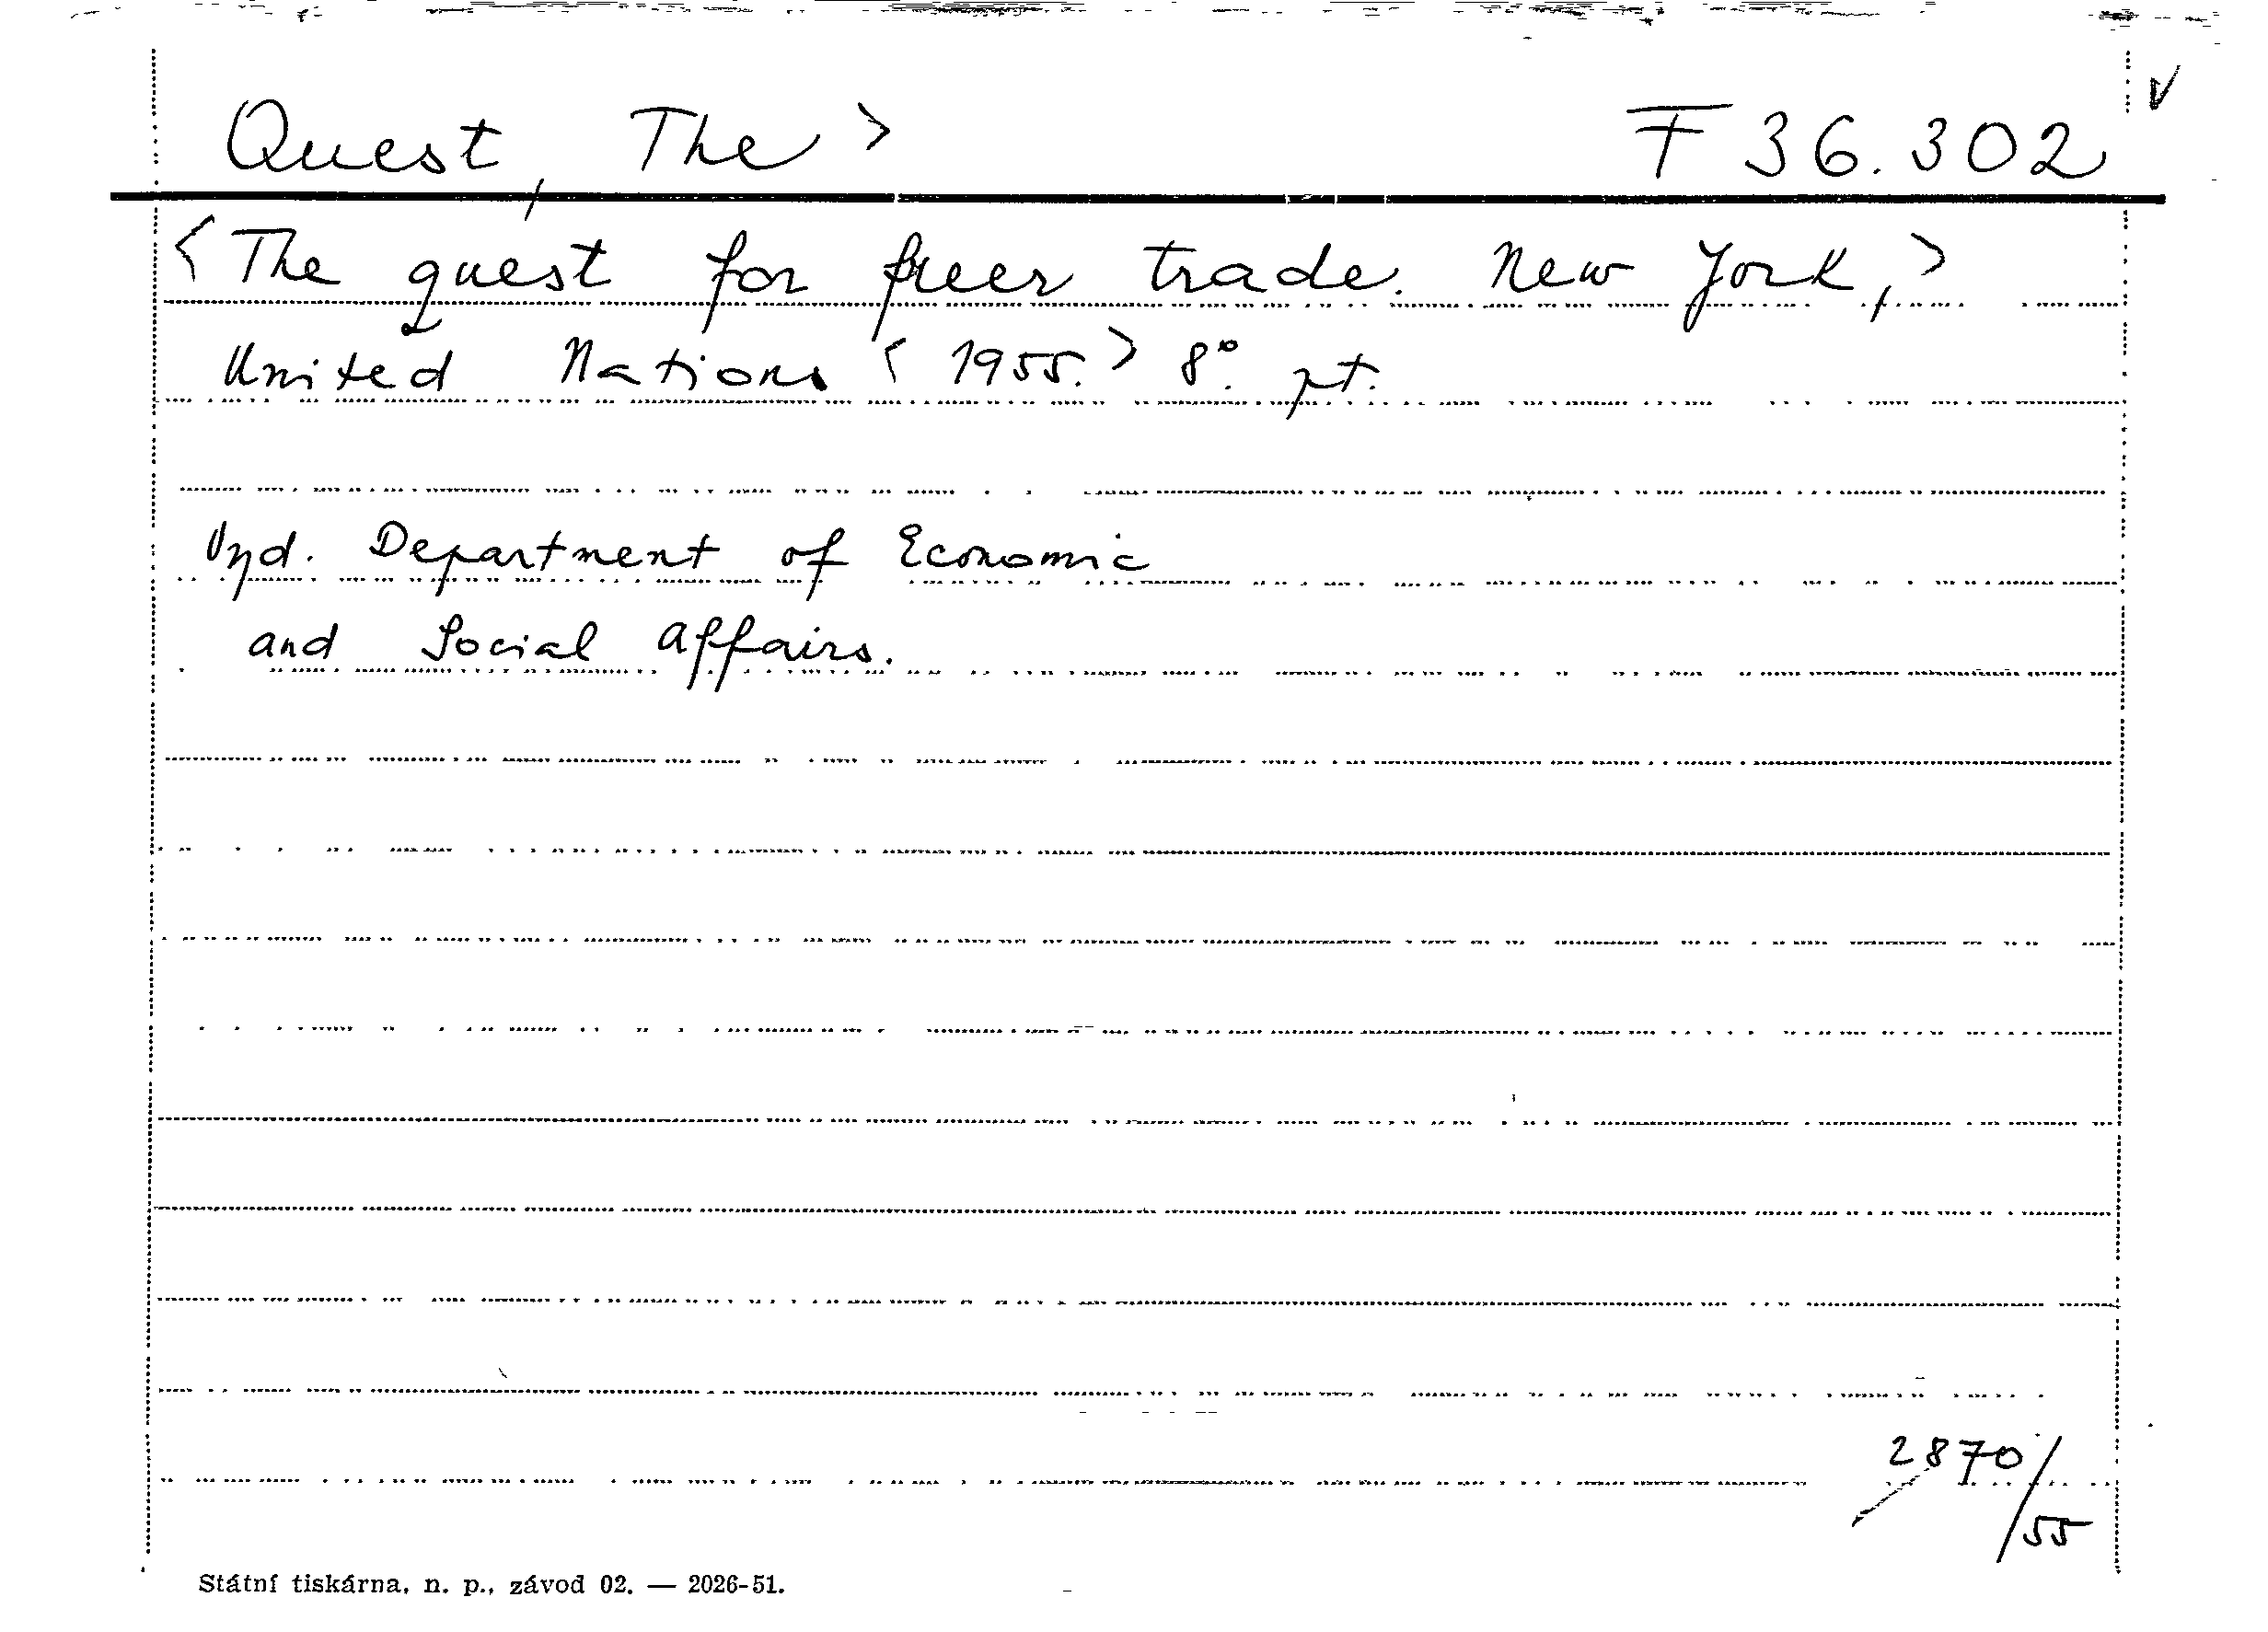 Quest, The > F 36.302
< The quest for freer trade. New York, >
United Nations < 1955. > 8°. pt.
Vyd. Department of Economic
and Social Affairs.
2870/55
Státní tiskárna, n. p., závod 02. — 2026-51.